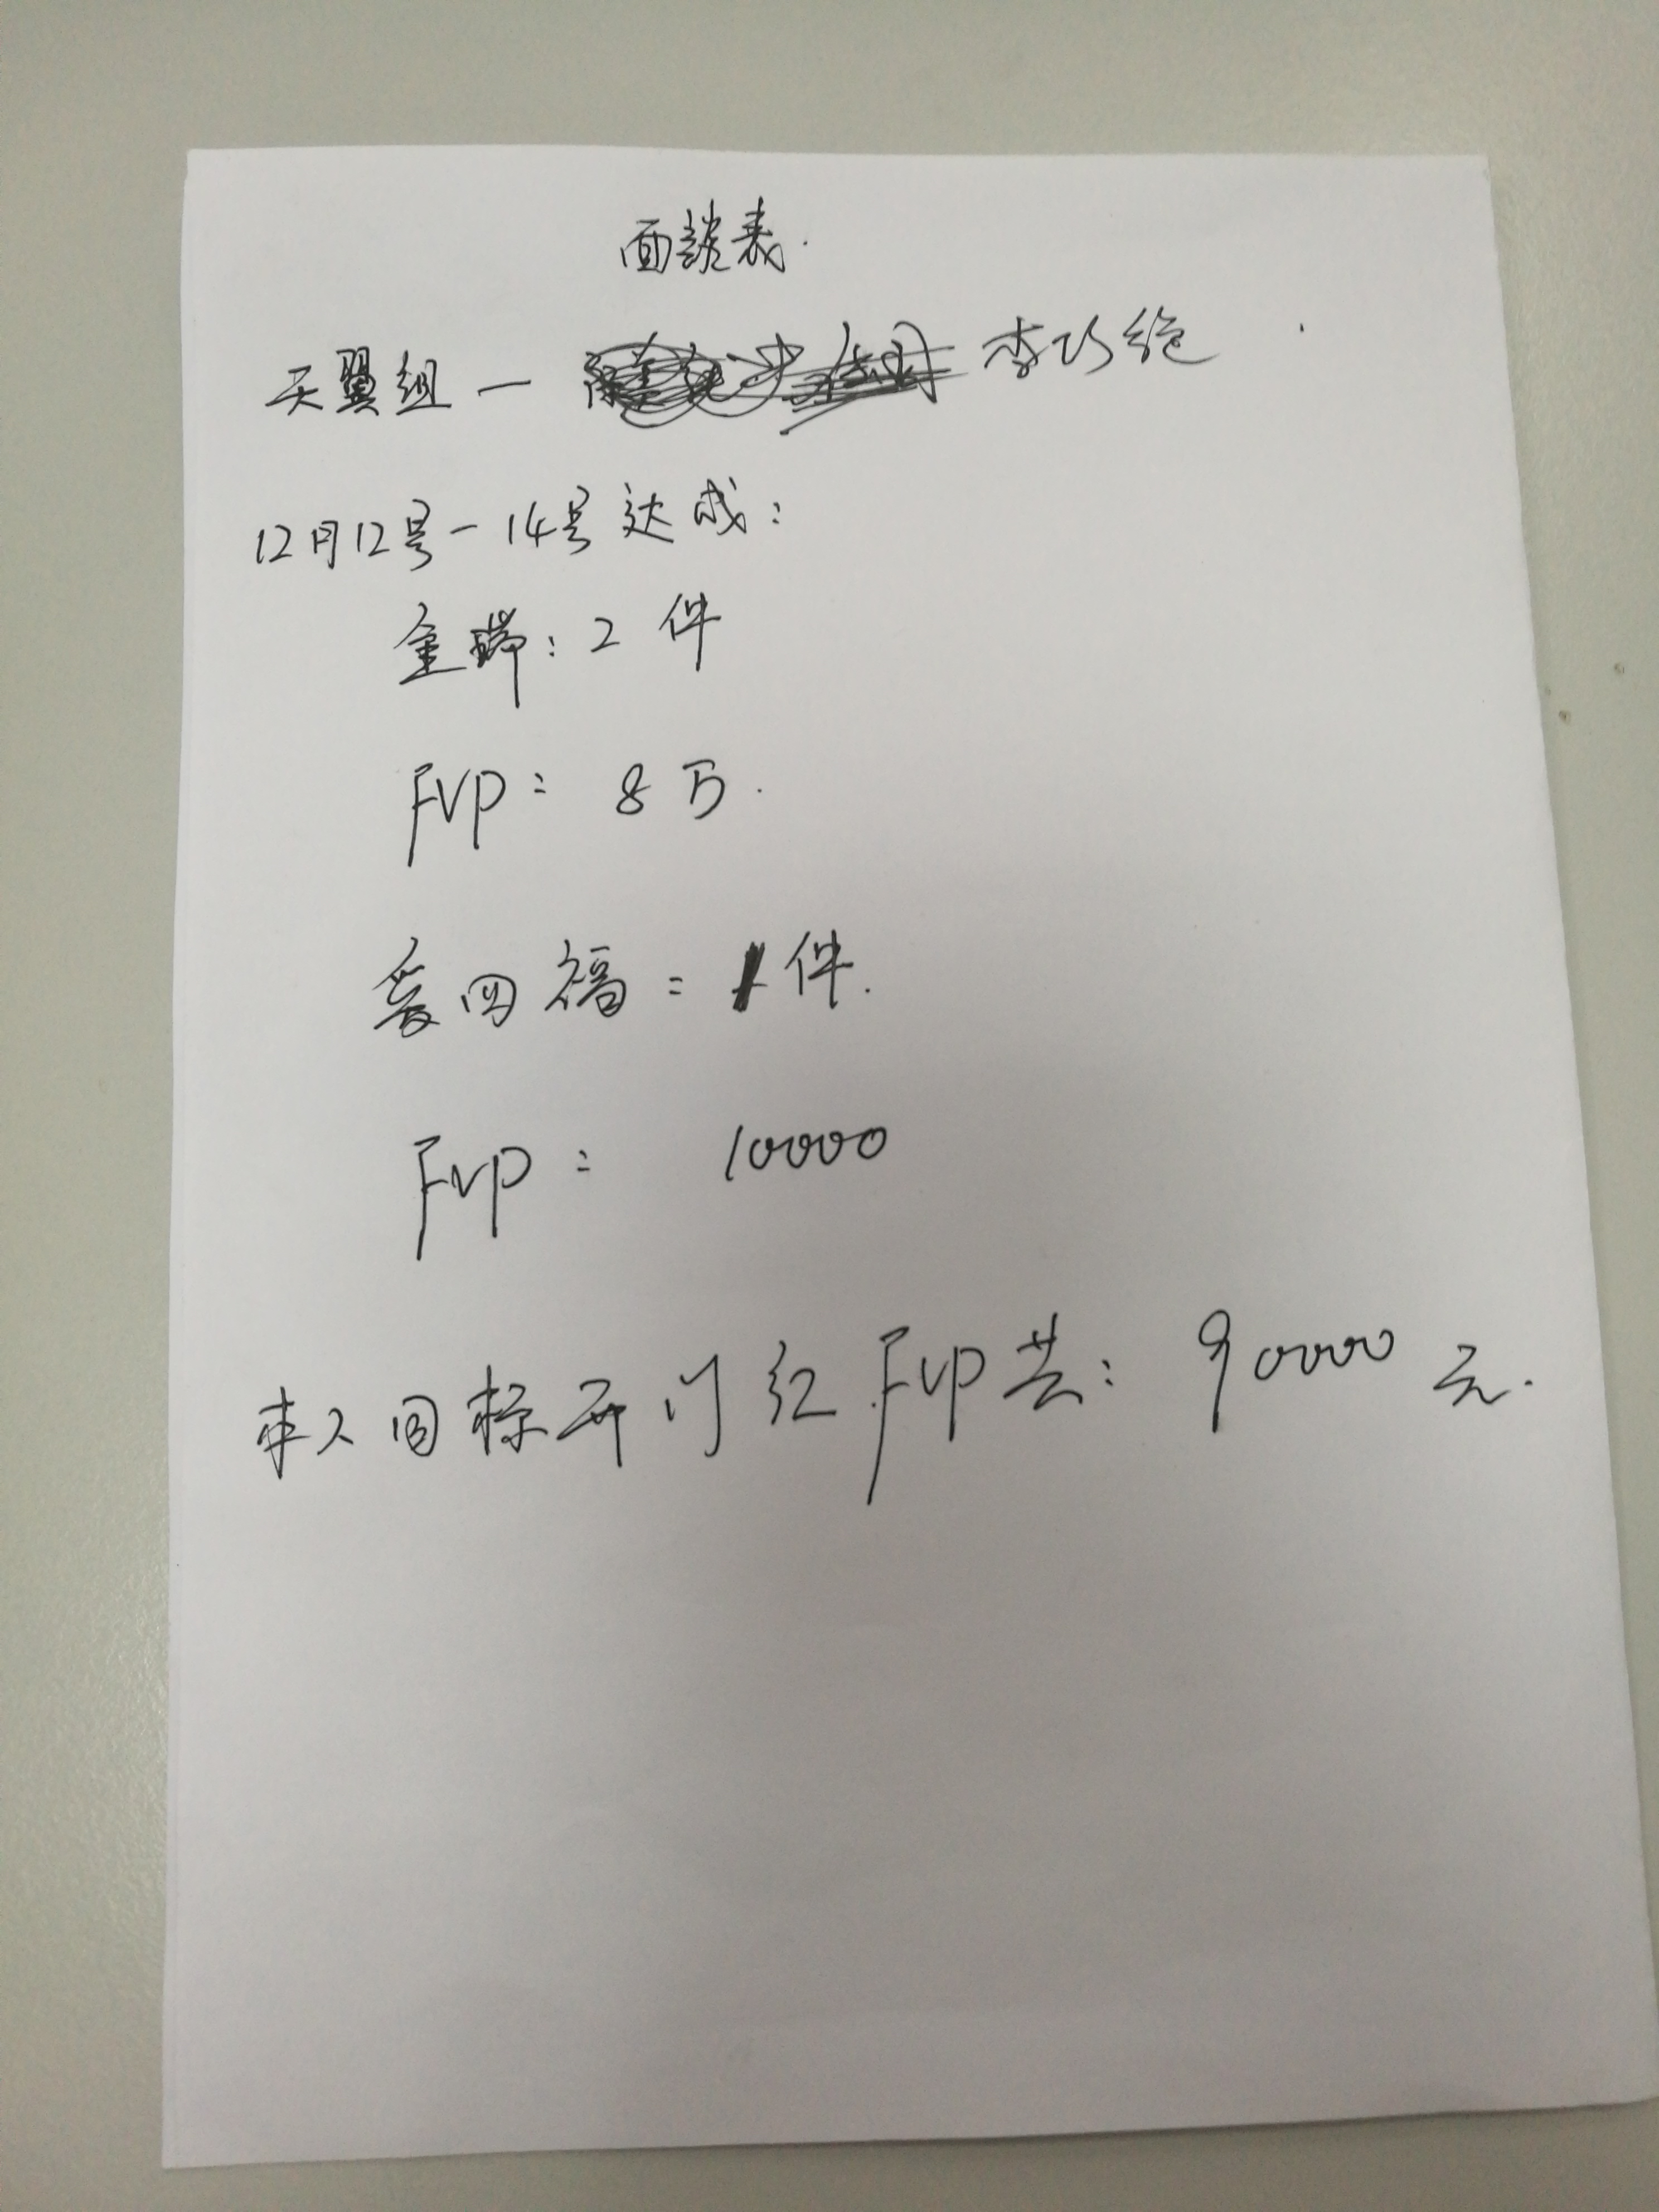 面谈表.
天翼组一 李巧绝
12月12号-14号达成:
金瑞:2件
FVP: 8万.
爱四福: 1件.
FVP: 10000
本人目标开门红FVP共: 90000元.